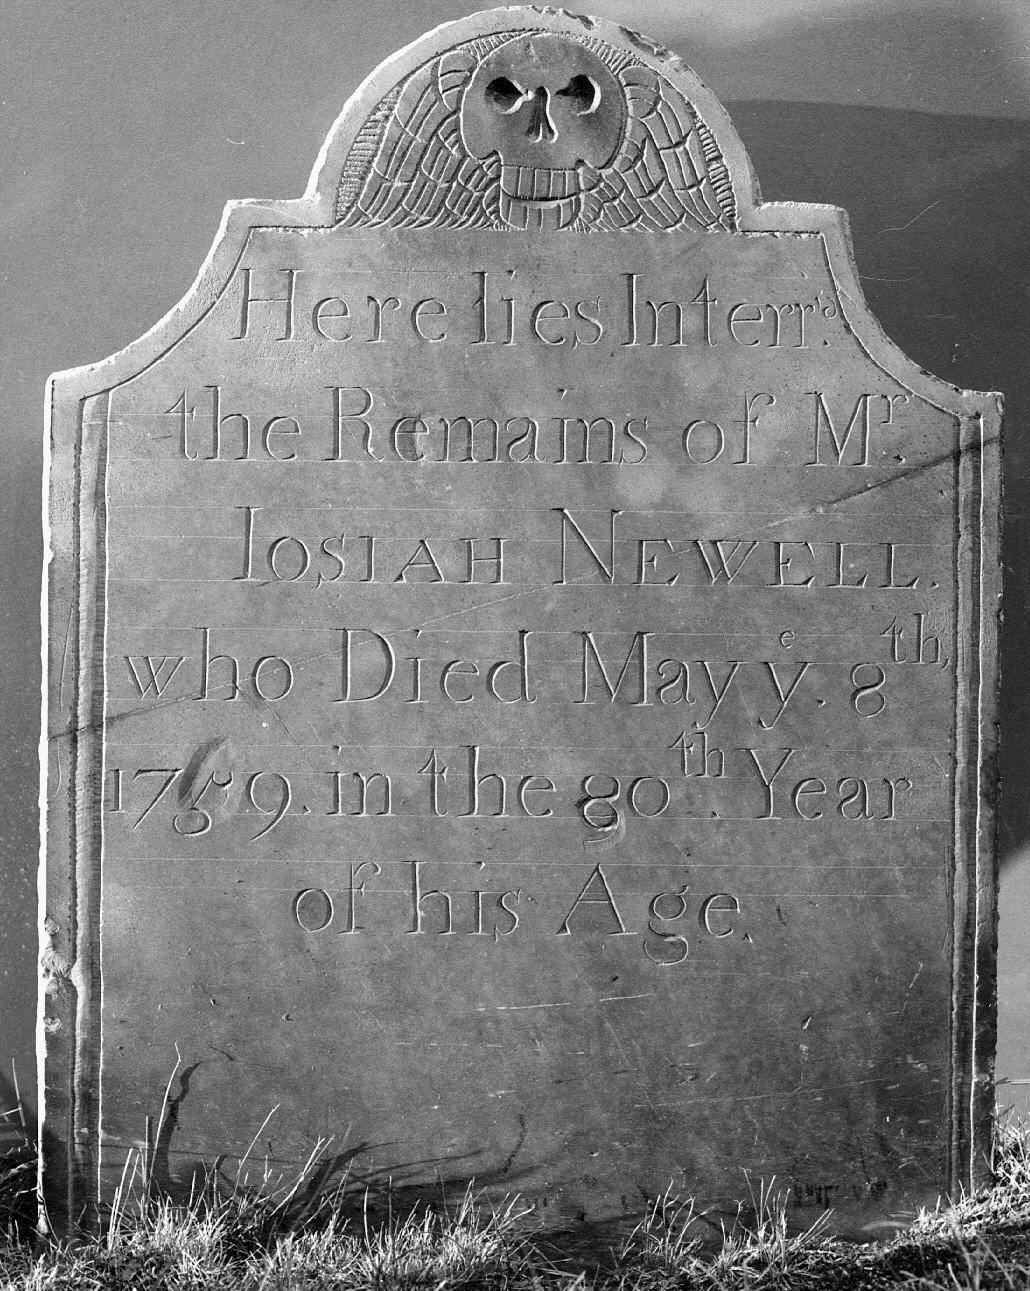 Here lies Interr'd
the Remains of Mr
IOSIAH NEWELL.
who Died May ye. 8th,
1759. in the 80th Year
of his Age.